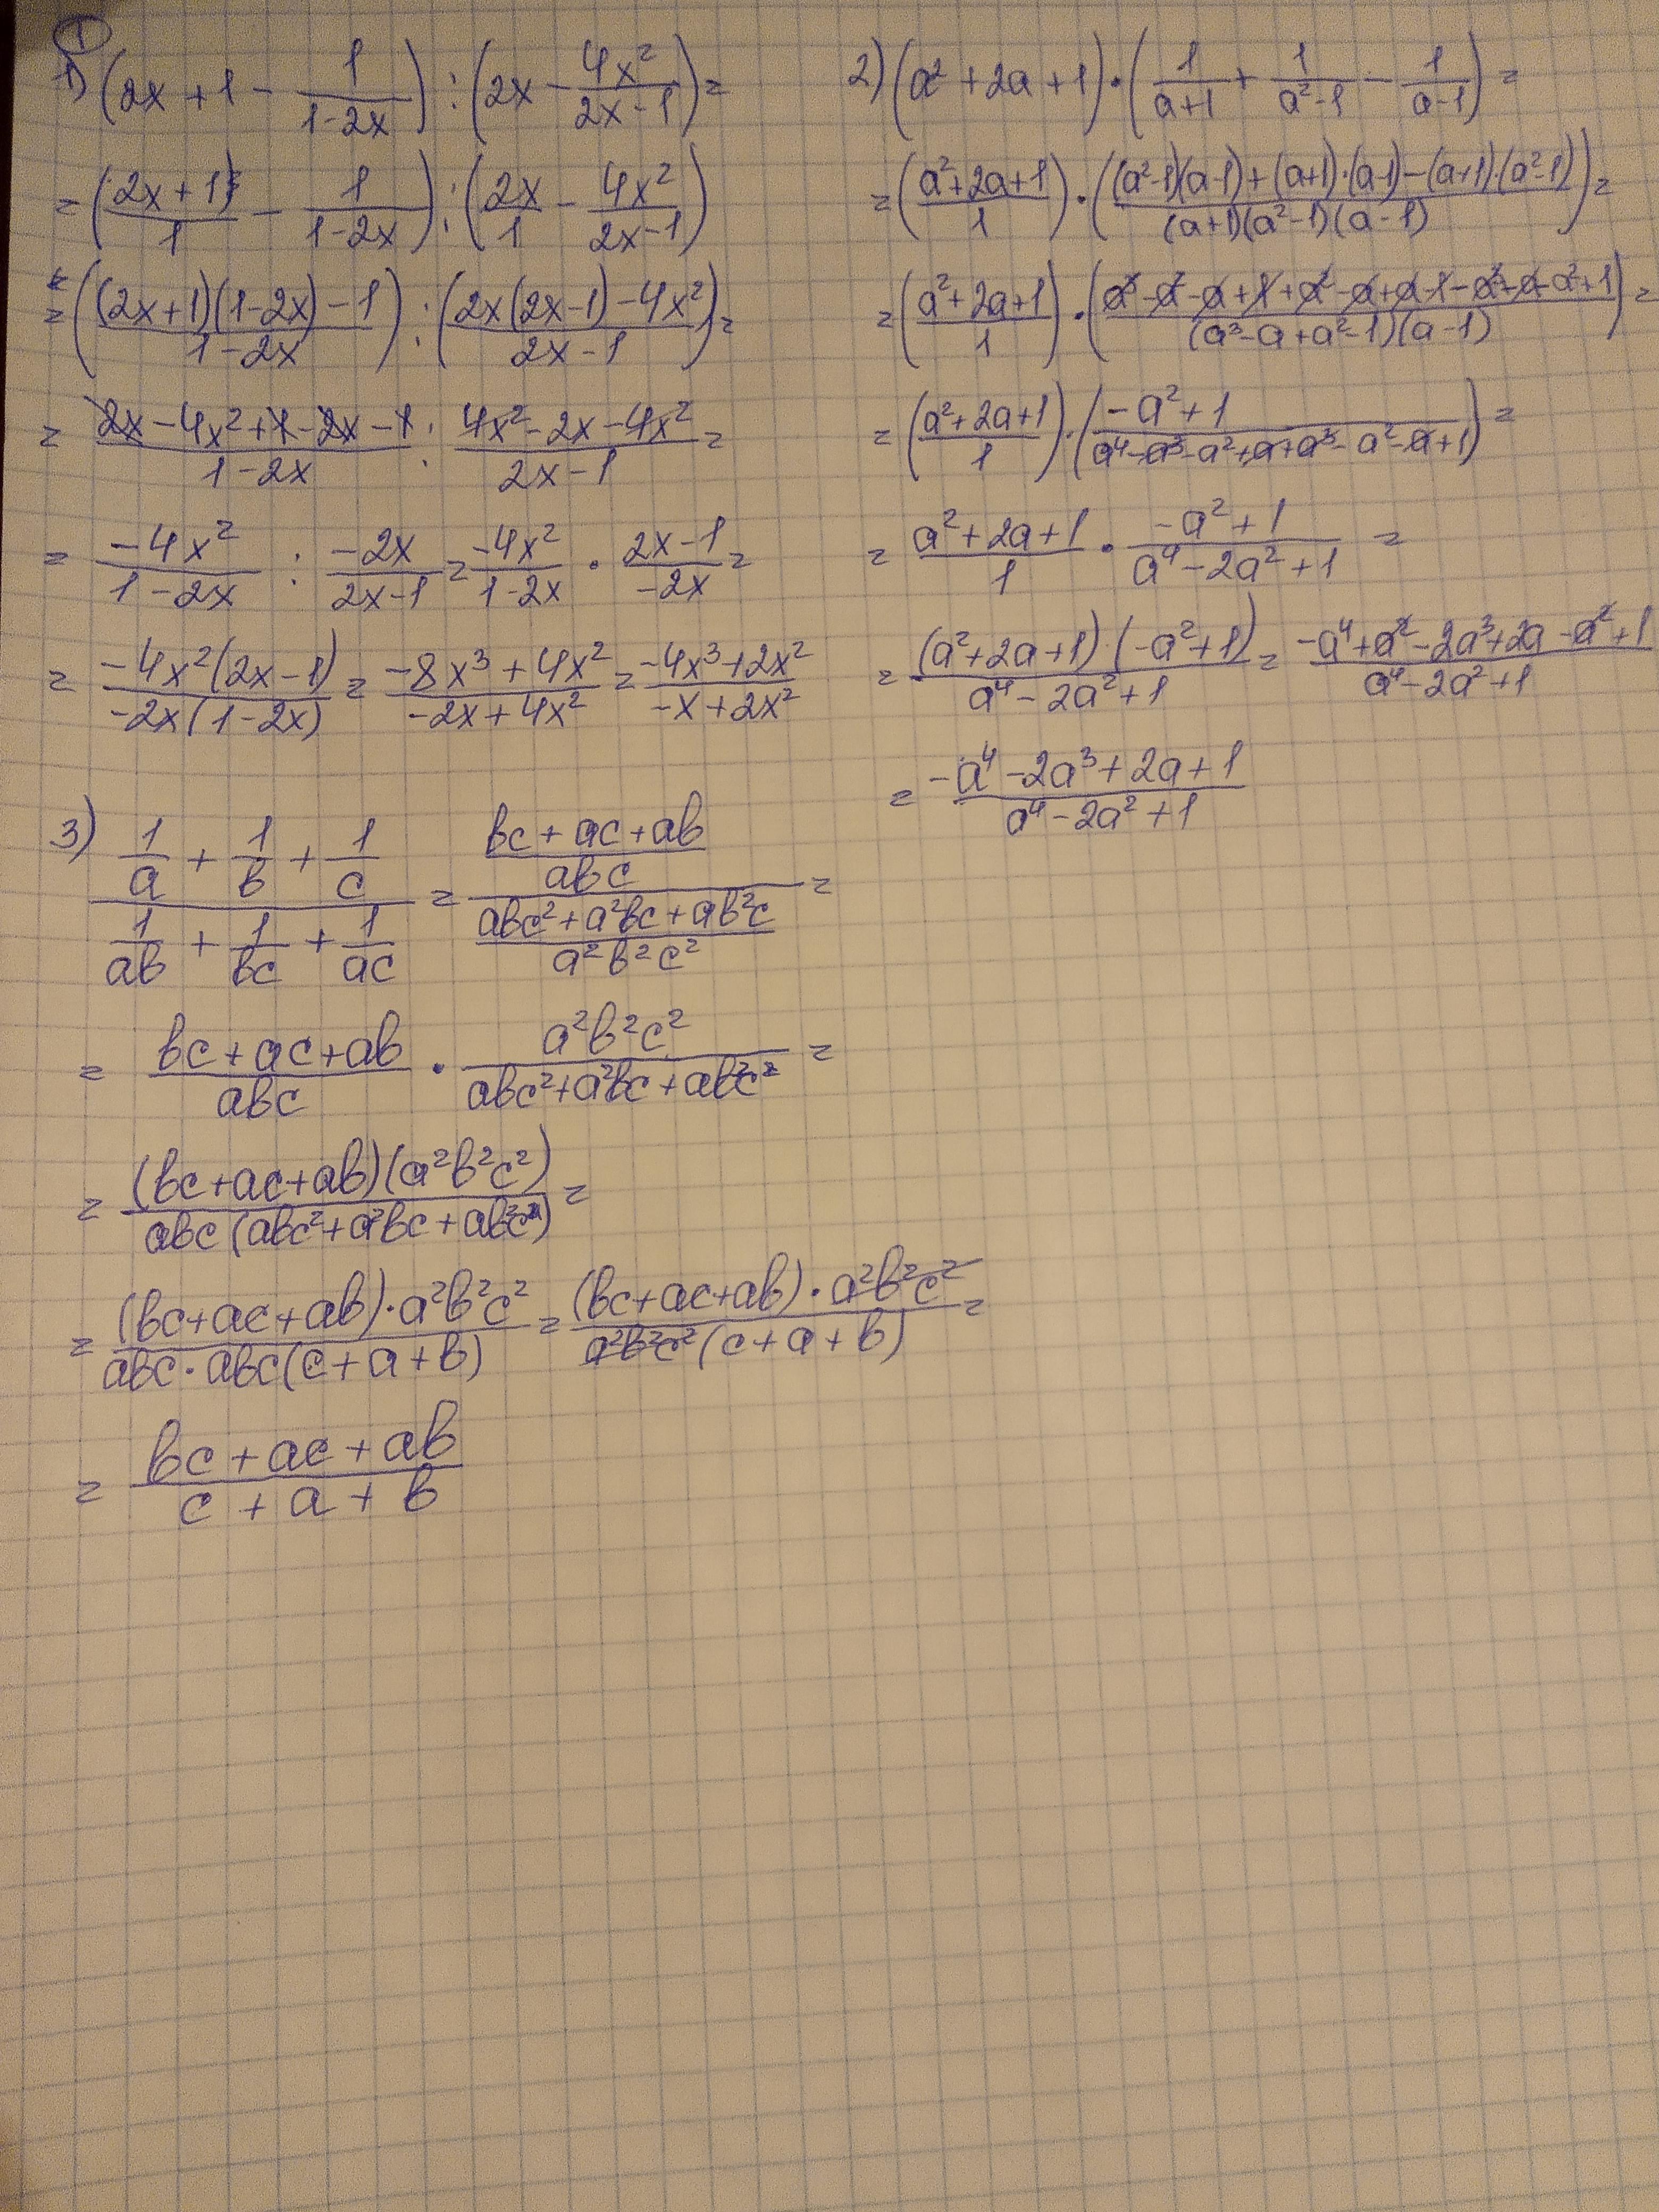 ①
1) (2x + 1 - 1/(1-2x)) : (2x - 4x²/(2x-1)) =
= ((2x+1)/1 - 1/(1-2x)) : (2x/1 - 4x²/(2x-1))
= (((2x+1)(1-2x)-1)/(1-2x)) : ((2x(2x-1)-4x²)/(2x-1)) =
= (2x-4x²+1-2x-1)/(1-2x) : (4x²-2x-4x²)/(2x-1) =
= -4x²/(1-2x) : -2x/(2x-1) = -4x²/(1-2x) · (2x-1)/(-2x) =
= -4x²(2x-1)/(-2x(1-2x)) = (-8x³+4x²)/(-2x+4x²) = (-4x³+2x²)/(-x+2x²)
2) (a² + 2a + 1) · (1/(a+1) + 1/(a²-1) - 1/(a-1)) =
= ((a²+2a+1)/1) · (((a²-1)(a-1)+(a+1)·(a-1)-(a+1)·(a²-1))/((a+1)(a²-1)(a-1))) =
= ((a²+2a+1)/1) · ((a³-a²-a+1+a²-a+a-1-a³+a-a²+1)/((a³-a+a²-1)(a-1))) =
= ((a²+2a+1)/1) · ((-a²+1)/(a⁴-a³-a²+a+a³-a²-a+1)) =
= (a²+2a+1)/1 · (-a²+1)/(a⁴-2a²+1) =
= (a²+2a+1)·(-a²+1)/(a⁴-2a²+1) = (-a⁴+a²-2a³+2a-a²+1)/(a⁴-2a²+1)
= (-a⁴-2a³+2a+1)/(a⁴-2a²+1)
3) (1/a + 1/b + 1/c)/(1/ab + 1/bc + 1/ac) = ((bc+ac+ab)/abc)/((abc²+a²bc+ab²c)/a²b²c²) =
= (bc+ac+ab)/abc · a²b²c²/(abc²+a²bc+ab²c) =
= (bc+ac+ab)(a²b²c²)/(abc(abc²+a²bc+ab²c)) =
= (bc+ac+ab)·a²b²c²/(abc·abc(c+a+b)) = (bc+ac+ab)·a²b²c²/(a²b²c²(c+a+b)) =
= (bc+ac+ab)/(c+a+b)